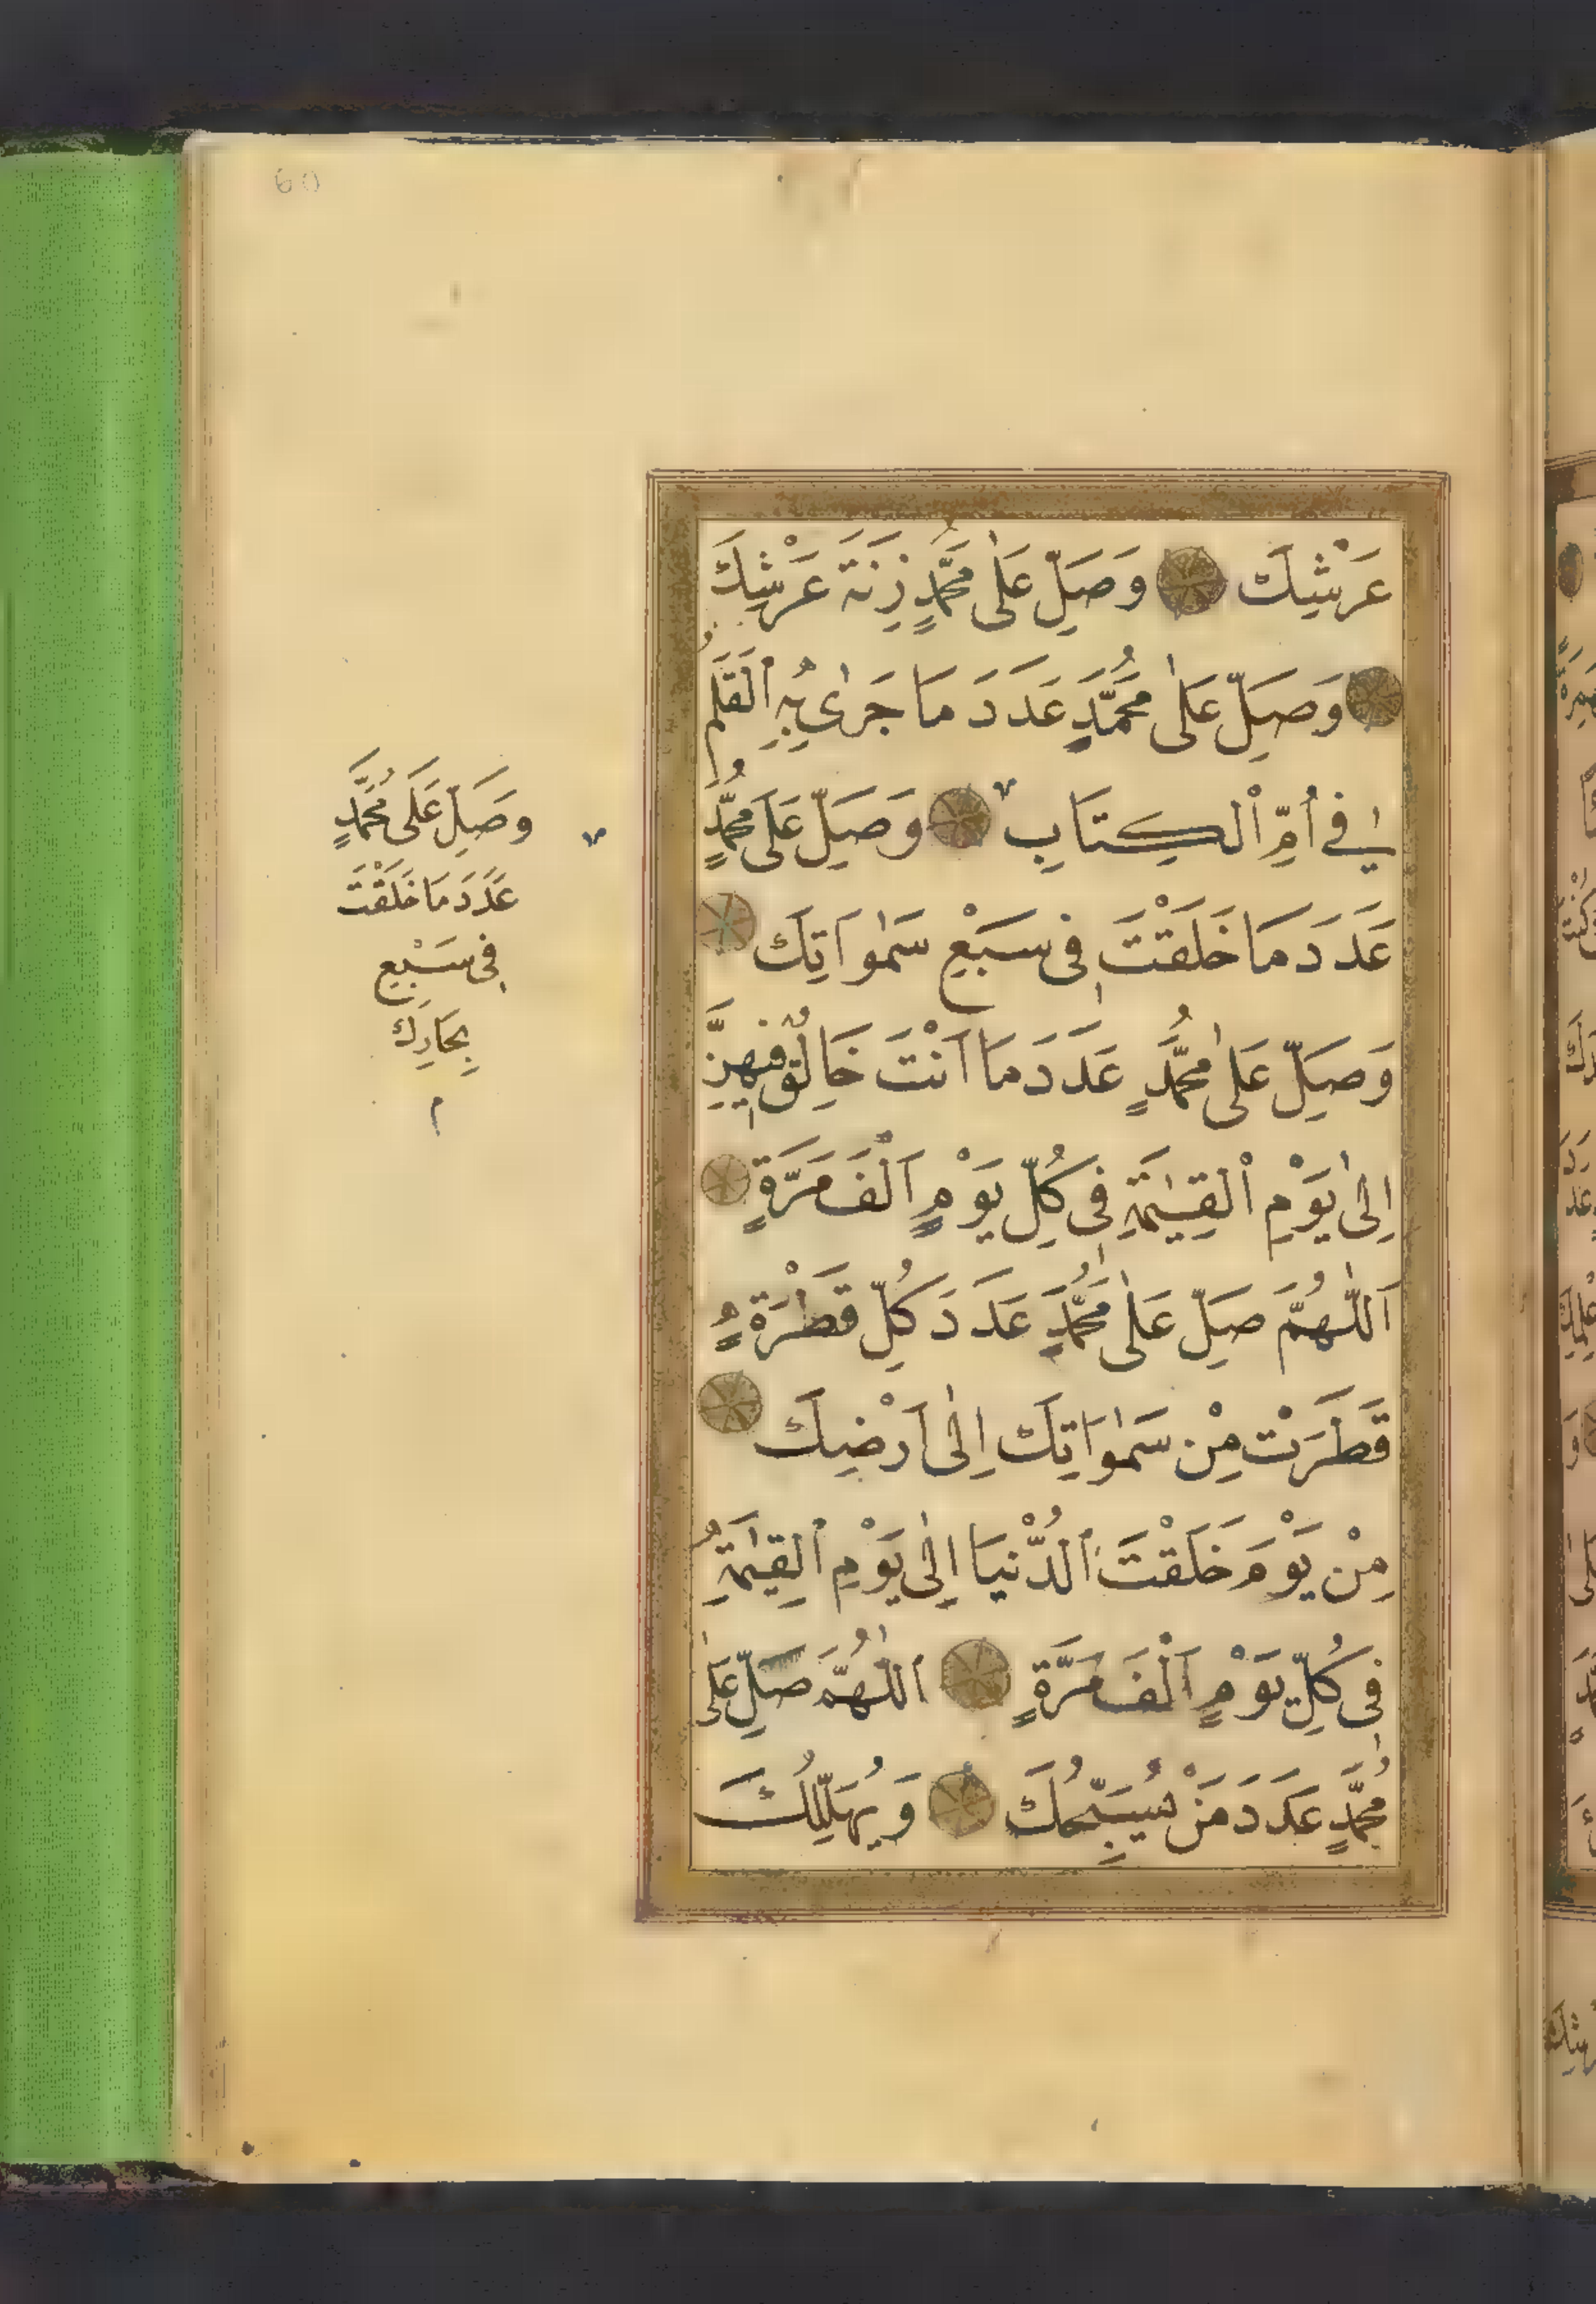 60
عَرْشِكَ وَصَلِّ عَلٰى مُحَمَّدٍ زِنَةَ عَرْشِكَ
وَصَلِّ عَلٰى مُحَمَّدٍ عَدَدَ مَا جَرٰى بِهِ ٱلْقَلَمُ
فِي أُمِّ ٱلْكِتَابِ وَصَلِّ عَلَى مُحَمَّدٍ
عَدَدَ مَا خَلَقْتَ فِى سَبْعِ سَمٰوَاتِكَ
وَصَلِّ عَلٰى مُحَمَّدٍ عَدَدَ مَا اَنْتَ خَالِقٌ فِيهِنَّ
اِلٰى يَوْمِ ٱلْقِيٰمَةِ فِى كُلِّ يَوْمٍ اَلْفَ مَرَّةٍ
اَللّٰهُمَّ صَلِّ عَلٰى مُحَمَّدٍ عَدَدَ كُلِّ قَطْرَةٍ
قَطَرَتْ مِنْ سَمٰوَاتِكَ اِلٰى اَرْضِكَ
مِنْ يَوْمَ خَلَقْتَ ٱلدُّنْيَا اِلٰى يَوْمِ ٱلْقِيٰمَةِ
فِى كُلِّ يَوْمٍ اَلْفَ مَرَّةٍ اَللّٰهُمَّ صَلِّ عَلٰى
مُحَمَّدٍ عَدَدَ مَنْ يُسَبِّحُكَ وَيُهَلِّلُكَ
وَصَلِّ عَلَى مُحَمَّدٍ
عَدَدَ مَا خَلَقْتَ
فِى سَبْعِ
بِحَارِكَ